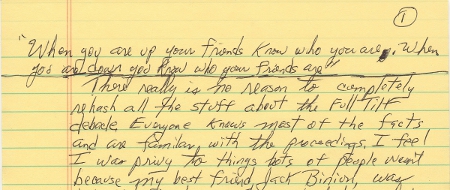 1
"When you are up your friends know who you are. When
you are down you know who your friends are"
There really is no reason to completely
rehash all the stuff about the Full Tilt
debacle. Everyone knows most of the facts
and are familiar with the proceedings. I feel
I was privy to things lots of people weren't
because my best friend, Jack Binion, was